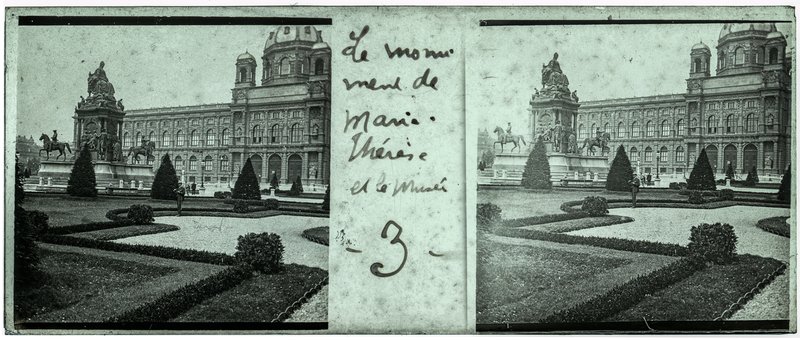 Le monu
ment de
Marie-
Thérèse
et le Musée
- 3 -